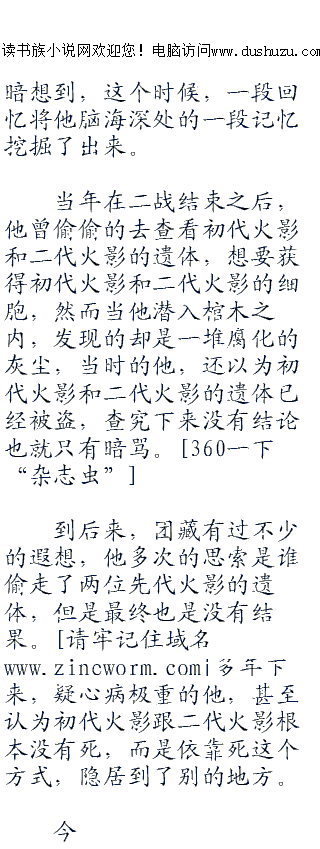 读书族小说网欢迎您！电脑访问www.dushuzu.com
暗想到，这个时候，一段回
忆将他脑海深处的一段记忆
挖掘了出来。
当年在二战结束之后，
他曾偷偷的去查看初代火影
和二代火影的遗体，想要获
得初代火影和二代火影的细
胞，然而当他潜入棺木之
内，发现的却是一堆腐化的
灰尘，当时的他，还以为初
代火影和二代火影的遗体已
经被盗，查究下来没有结论
也就只有暗骂。[360一下
“杂志虫”]
到后来，团藏有过不少
的遐想，他多次的思索是谁
偷走了两位先代火影的遗
体，但是最终也是没有结
果。[请牢记住域名
www.zincworm.com|多年下
来，疑心病极重的他，甚至
认为初代火影跟二代火影根
本没有死，而是依靠死这个
方式，隐居到了别的地方。
今